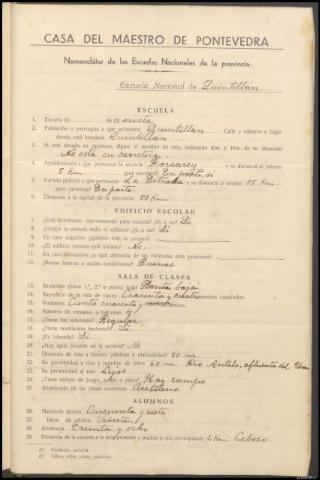 CASA DEL MAESTRO DE PONTEVEDRA
Nomenclátor de las Escuelas Nacionales de la provincia
Escuela Nacional de Quintillán
ESCUELA
1. Escuela (1) de (2) mixta
2. Población o parroquia a que pertenece Quintillan Calle y número o lugar
donde está instalada Quintillan
3. Si está situada en carretera, dígase el nombre de ésta, indicando Km. y Hm. de su situación
No está en carretera
4. Ayuntamiento a que pertenece la escuela Forcarey y su distancia al mismo
5 Km. ¿por carretera? En parte, si
5. Partido judicial a que pertenece La Estrada y su distancia al mismo 15 Km.
¿por carretera? En parte.
6. Distancia a la capital de la provincia 50 Km.
EDIFICIO ESCOLAR
7. ¿Está construído expresamente para escuela? ¿Sí o no? Si
8. ¿Ocupa la escuela todo el edificio? ¿Sí o no? Si
9. En caso negativo ¿quiénes más lo ocupan?
10. ¿El edificio escuela está aislado? No.
11. En caso afirmativo ¿a qué distancia de las viviendas más próximas?
12. ¿Reune buenas o malas condiciones? Buenas
SALA DE CLASES
13. Situación: (planta 1.ª, 2.ª o planta baja) Planta baja.
14. Superficie de la sala de clases: Cuarenta y cuatro metros cuadrados.
15. Volumen: Ciento cuarenta y
16. Número de ventanas o balcones 4
17. ¿Tiene luz suficiente? Regular
18. ¿Tiene ventilación bastante? Si.
19. ¿Es húmeda? Si
20. ¿Hay agua potable en la escuela? No.
21. Distancia de ésta a fuentes públicas o manantiales? 50 m.
22. Su proximidad a ríos o nombre de éstos 60 m. Rio Antelo, afluente del
23. Su proximidad al mar Lejos
24. ¿Tiene campo de juego, patio o patín? Hay campo.
25. Alumbrado de las clases nocturnas Acetileno
ALUMNOS
26. Matrícula diurna Cincuenta y siete.
27. Idem de adultos Veinte
28. Asistencia Treinta y ocho
29. Distancia de la escuela a la más próxima y pueblo a que corresponde 2 Km.
(1) Graduada, unitaria
(2) Niños, niñas, mixta, párvulos.